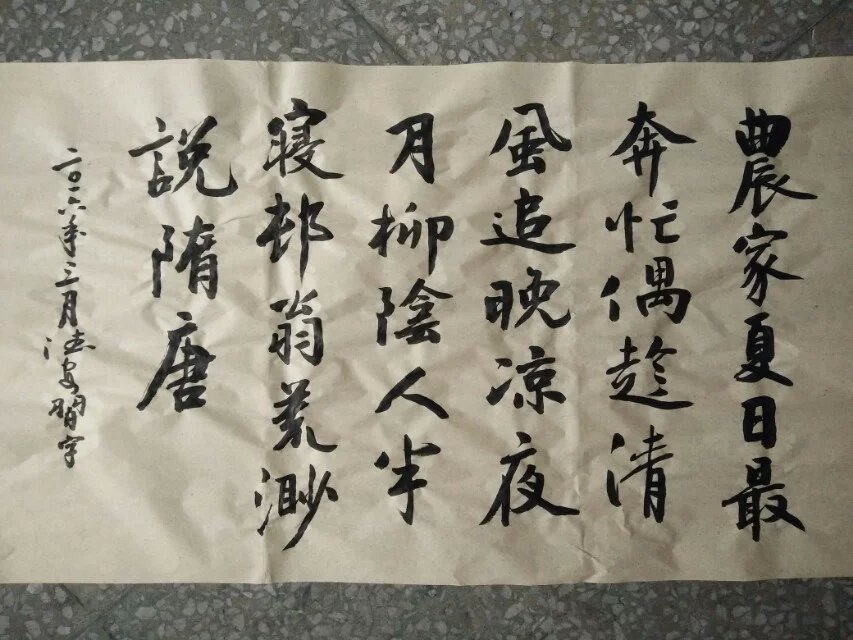 農家夏日最
奔忙偶趁清
風追晚涼夜
月柳陰人半
寢邨翁荒渺
説隋唐
二〇一六年三月習字